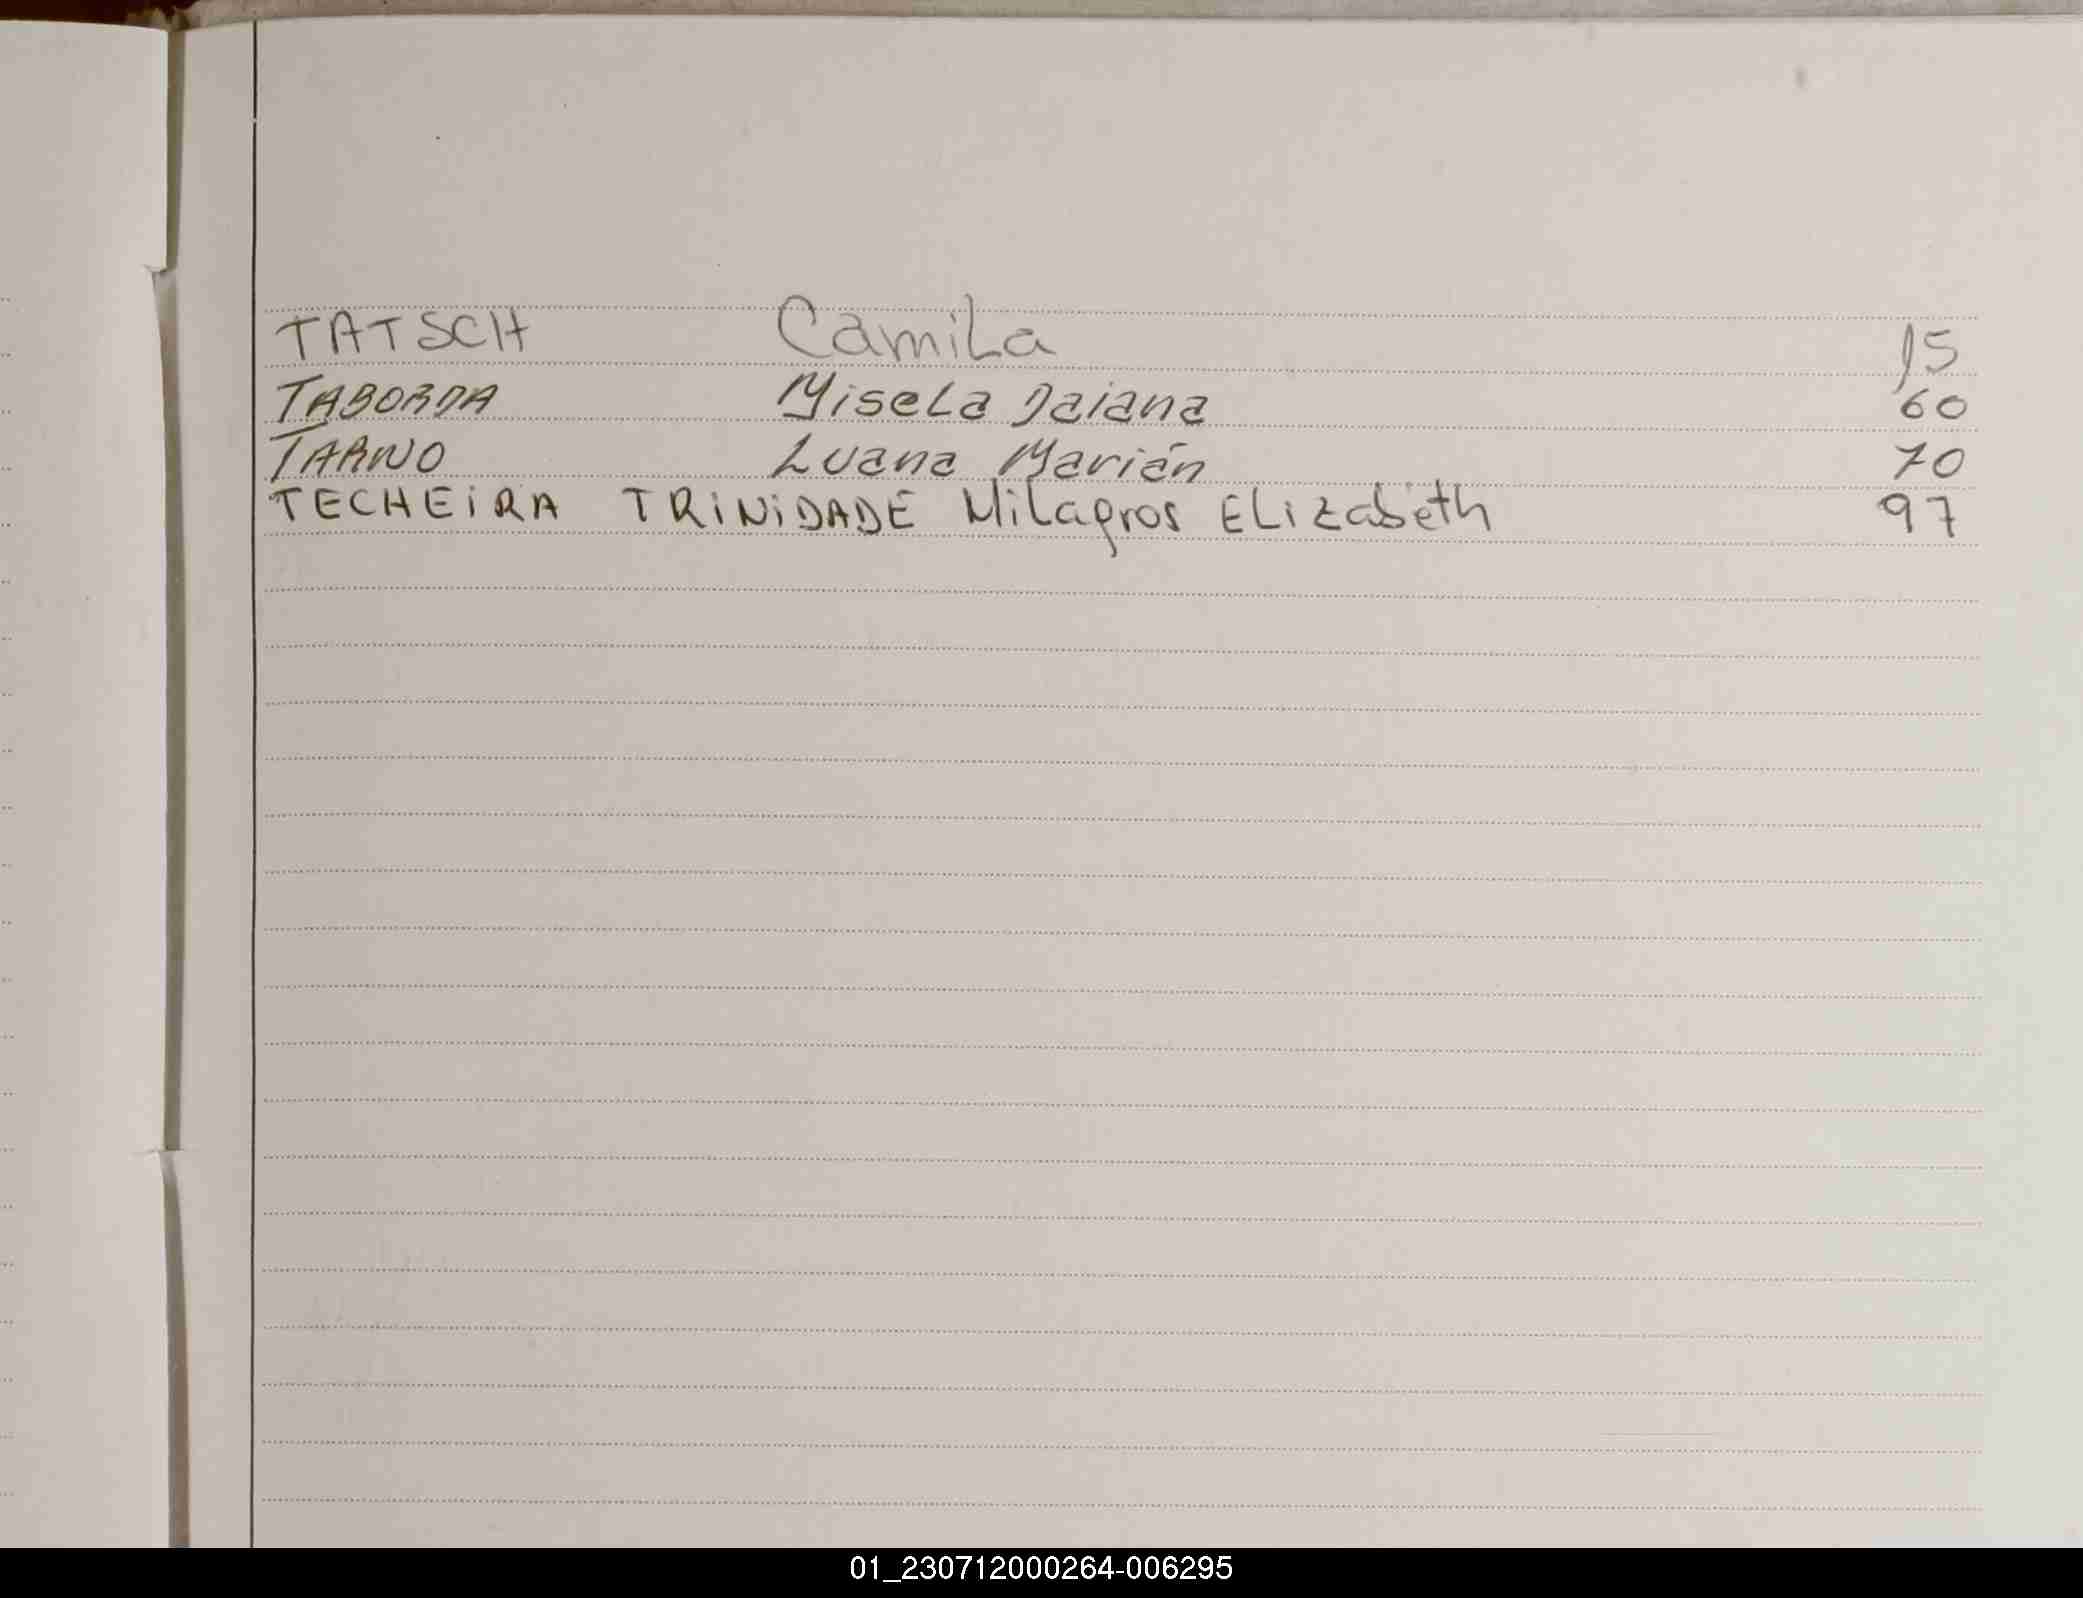 TATSCH Camila 15
TABORDA Misela Daiana 60
TARNO Luana Marián 70
TECHEIRA TRINIDADE Milagros Elizabeth 97
01_230712000264-006295